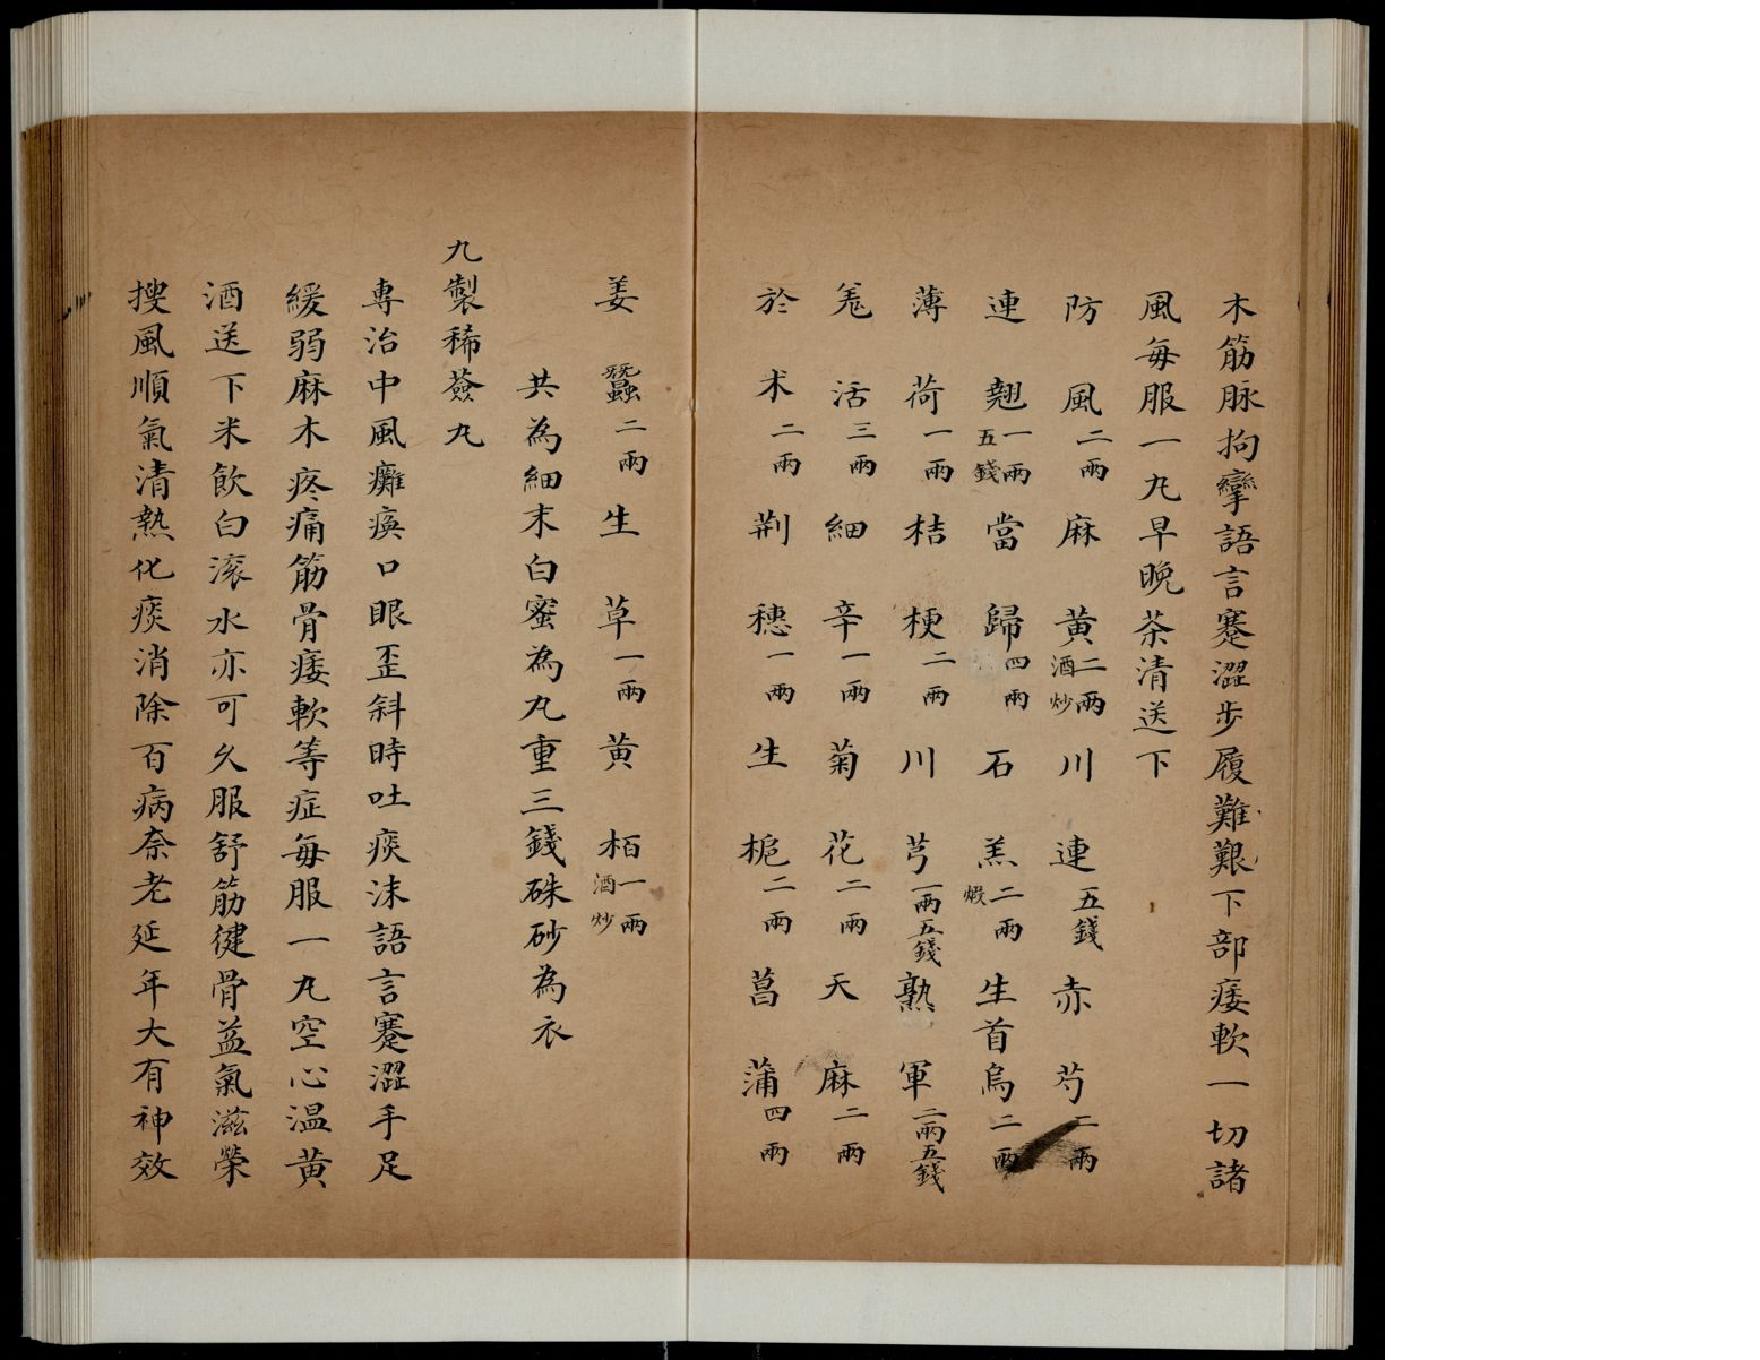 木筋脉拘攣語言蹇澀步履難艱下部痿軟一切諸
風每服一丸早晚茶清送下
防風二兩麻黃二兩酒炒川連五錢赤芍二兩
連翹一兩五錢當歸四兩石羔二兩煅生首烏二兩
薄荷一兩桔梗二兩川芎一兩五錢熟軍二兩五錢
羗活三兩細辛一兩菊花二兩天麻二兩
於朮二兩荆穗一兩生梔二兩菖蒲四兩
姜蠶二兩生草一兩黃栢一兩酒炒
共為細末白蜜為丸重三錢硃砂為衣
九製稀薟丸
專治中風癱瘓口眼歪斜時吐痰沫語言蹇澀手足
緩弱麻木疼痛筋骨痿軟等症每服一丸空心温黃
酒送下米飲白滚水亦可久服舒筋健骨益氣滋榮
搜風順氣清熱化痰消除百病奈老延年大有神效